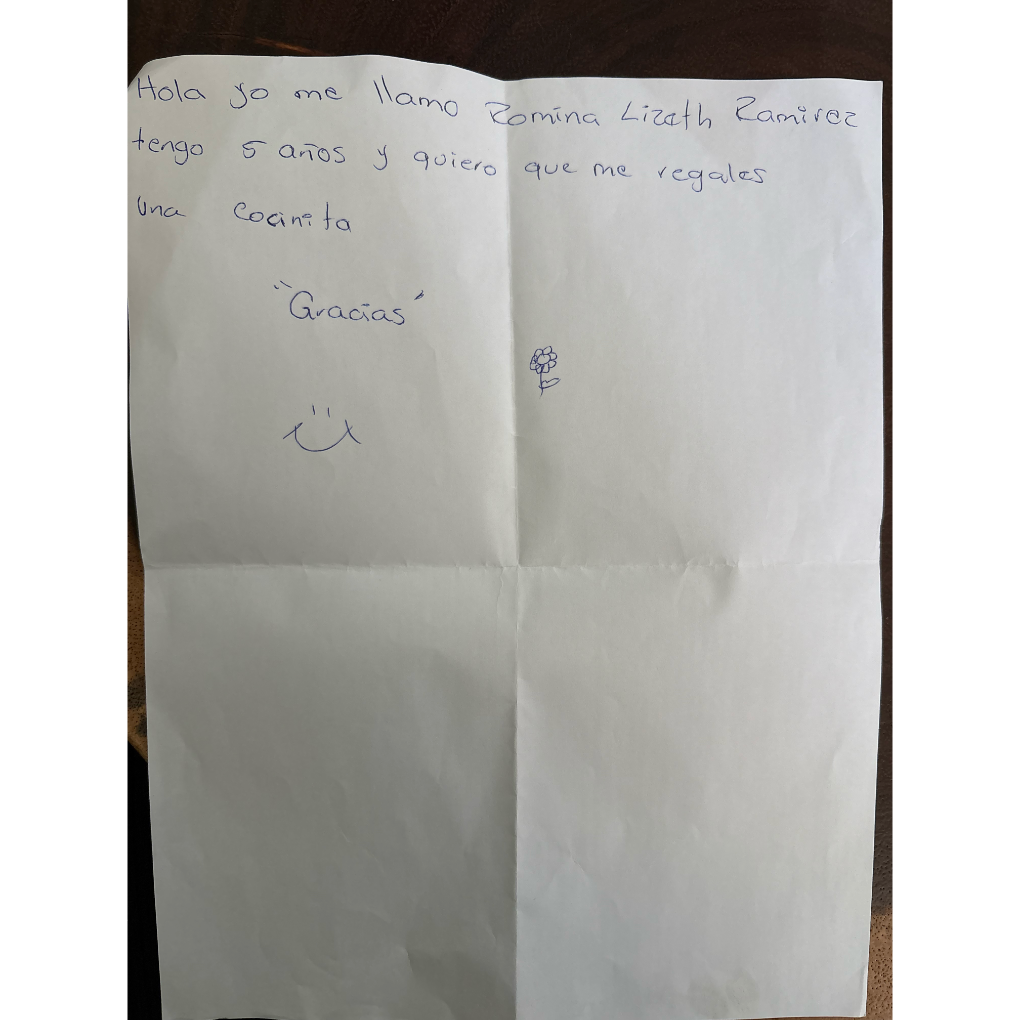 Hola yo me llamo Romina Lizeth Ramirez
tengo 5 años y quiero que me regales
una Cocinita
"Gracias"